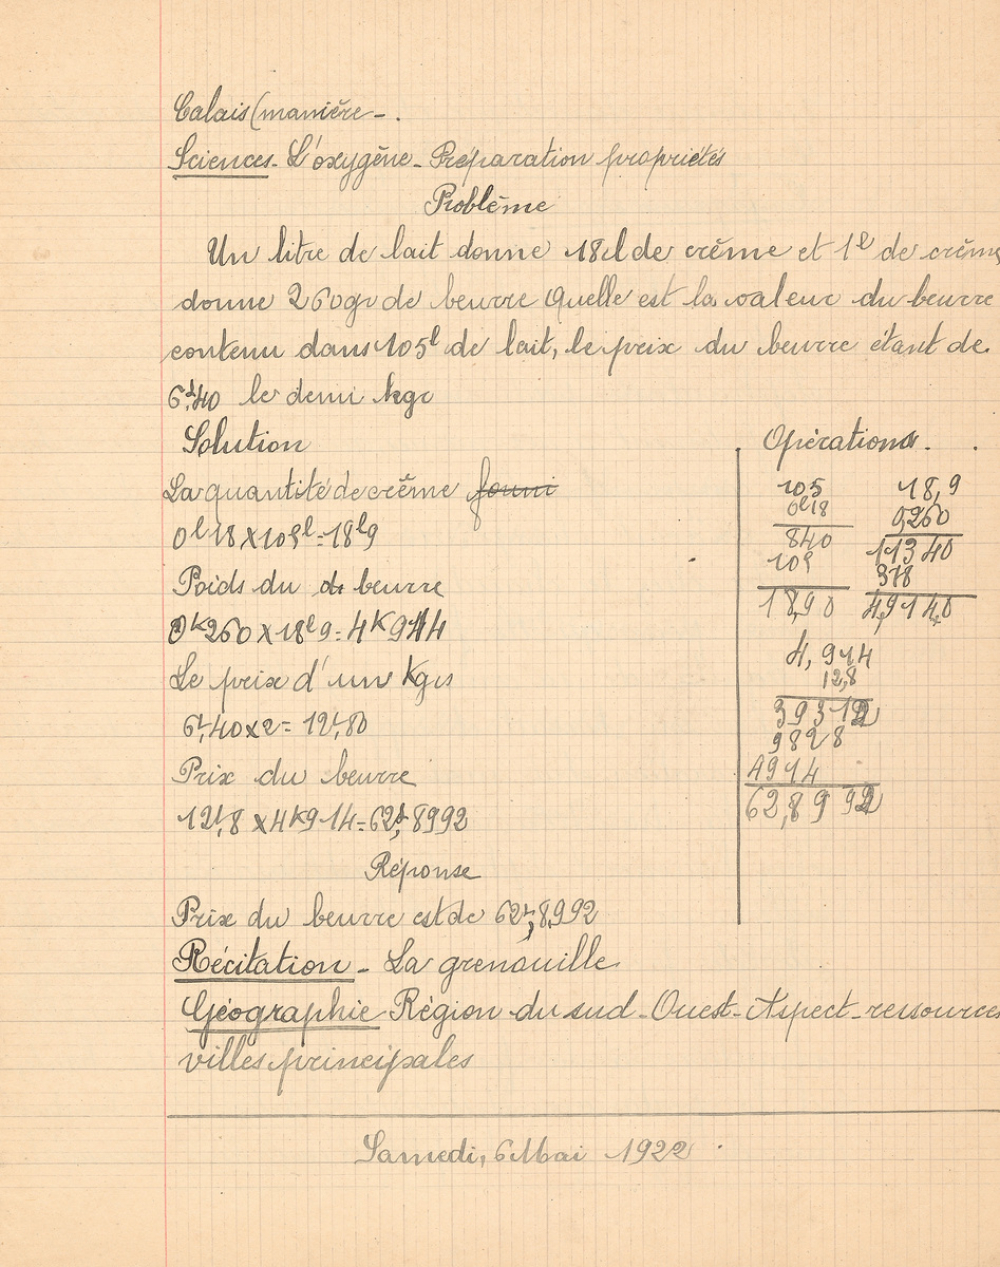 Calais (manière - .
Sciences - L'oxygène - Préparation propriétés
Problème
Un litre de lait donne 18cl de crème et 1l de crème
donne 260gr de beurre Quelle est la valeur du beurre
contenu dans 105l de lait, le prix du beurre étant de
6f,40 le demi kgr
Solution
La quantité de crème fourni
0l18 x 105l = 18l9
Poids du de beurre
0K260 x 18l9 = 4K914
Le prix d'un Kgrs
6f,40 x 2 = 12f,80
Prix du beurre
12f,8 x 4K914 = 62f,8992
Réponse
Prix du beurre est de 62f,8992
Opérations.
105 18,9
0l18 0,260
840 11340
105 378
18,90 4,9140
4,914
12,8
39312
9828
4914
62,8992
Récitation - La grenouille
Géographie Région du sud-Ouest - Aspect - ressources
villes principales
Samedi, 6 Mai 1922